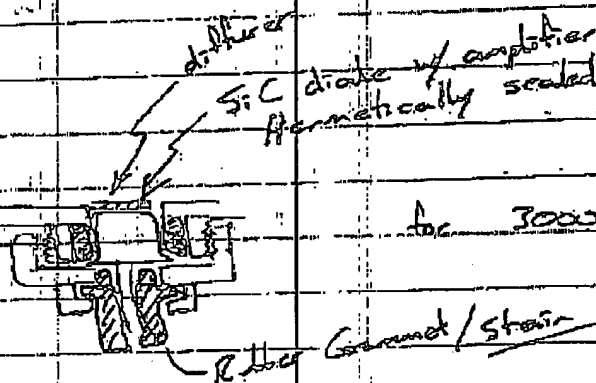 diffuser
SiC diode w/ amplifier
Hermetically sealed
for 3000
Rubber Grommet / strain